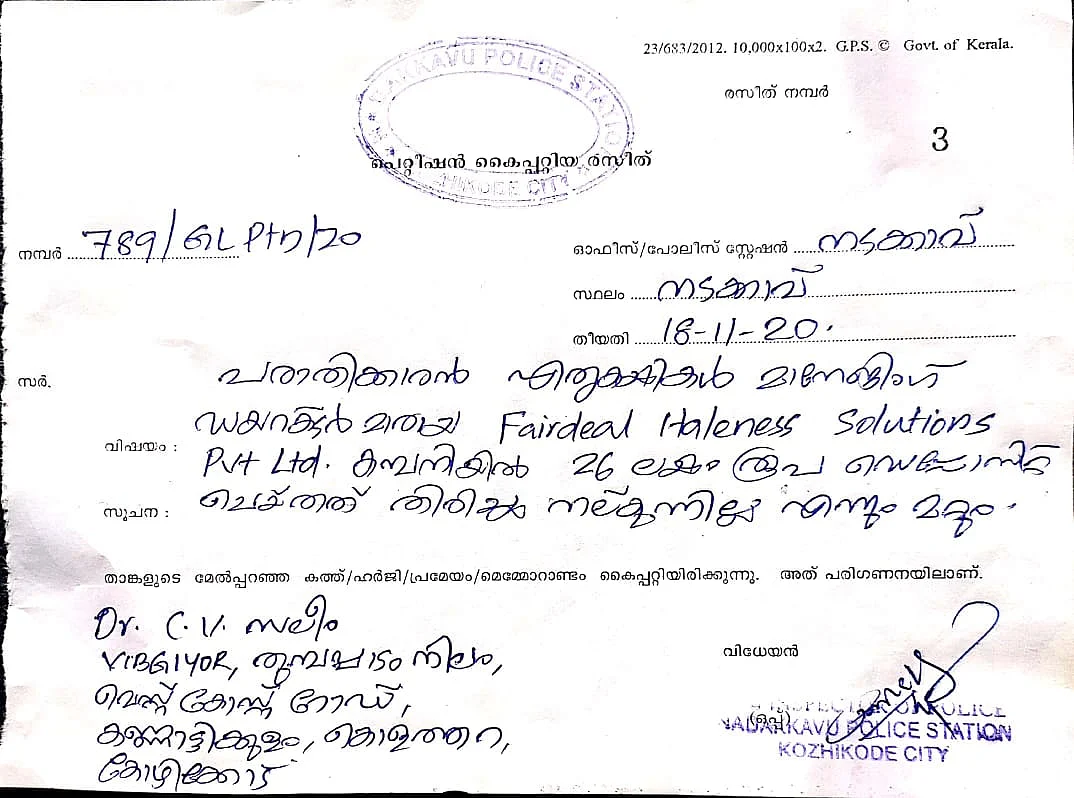 23/683/2012. 10,000x100x2. G.P.S. © Govt. of Kerala.
രസീത് നമ്പർ
3
NADAKKAVU POLICE STATION
KOZHIKODE CITY
പെറ്റീഷൻ കൈപ്പറ്റിയ രസീത്
നമ്പർ 789/GL Ptn/20
ഓഫീസ്/പോലീസ് സ്റ്റേഷൻ നടക്കാവ്
സ്ഥലം നടക്കാവ്
തീയതി 18-11-20.
സർ.
പരാതിക്കാരൻ എതൃകക്ഷികൾ മാനേജിംഗ്
ഡയറക്ടർ മാരായ Fairdeal Haleness Solutions
വിഷയം :
Pvt Ltd. കമ്പനിയിൽ 26 ലക്ഷം രൂപ ഡെപ്പോസിറ്റ്
സൂചന :
ചെയ്തത് തിരിച്ചു നല്കുന്നില്ല എന്നും മറ്റും.
താങ്കളുടെ മേൽപ്പറഞ്ഞ കത്ത്/ഹർജി/പ്രമേയം/മെമ്മോറാണ്ടം കൈപ്പറ്റിയിരിക്കുന്നു. അത് പരിഗണനയിലാണ്.
Dr. C. V. സലീം
VIBGIYOR, തുമ്പപ്പാടം നിലം,
വെസ്റ്റ് കോസ്റ്റ് റോഡ്,
കണ്ണാട്ടിക്കുളം, കൊളത്തറ,
കോഴിക്കോട്
വിധേയൻ
(ഒപ്പ്)
INSPECTOR OF POLICE
NADAKKAVU POLICE STATION
KOZHIKODE CITY